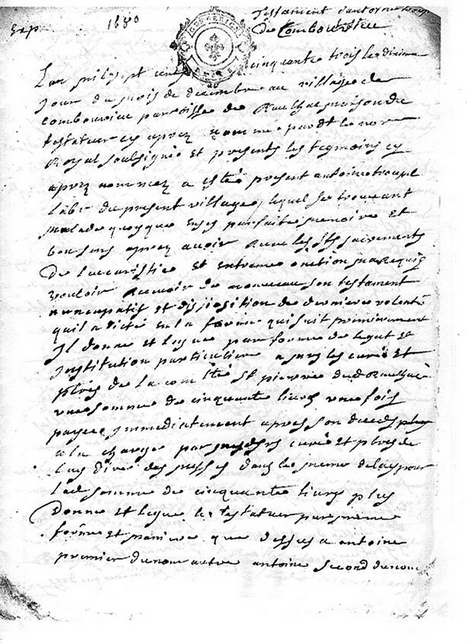 Exp 1880 Testament dantoine troupel
De Combourelié
Lan mil sept cent cinquante trois le dixieme
Jour du mois de decembre au village de
paroisse de maison du
testateur cy apres nommé pardt le nore
Royal soussigné et presents les tesmoins cy
apres nommez a esté present antoine troupel
Labr du present village, lequel se trouvant
malade quoyque en sa parfaite memoire et
bon sens apres avoir Receu les sts sacrements
De Leucaristice et extreme onction ma Requis
vouloir Recevoir de nouveau son testament
nuncupatif et disposition de derniere volonté
quil a dicté en la forme qui suit premierement
Il donne et legue par forme de legat et
Institution particuliere a srs les curé et
ptres de la comtté St pierre de
une somme de cinquante livres une fois
payée Immediatement apres son deces
a la charge par srs curé et ptres de
Luy dire des messes dans le meme delay pour
lad somme de cinquante livres plus
Donne et legue le testateur par meme
forme et maniere que dessus a antoine
premier du nom autre antoine second du nom